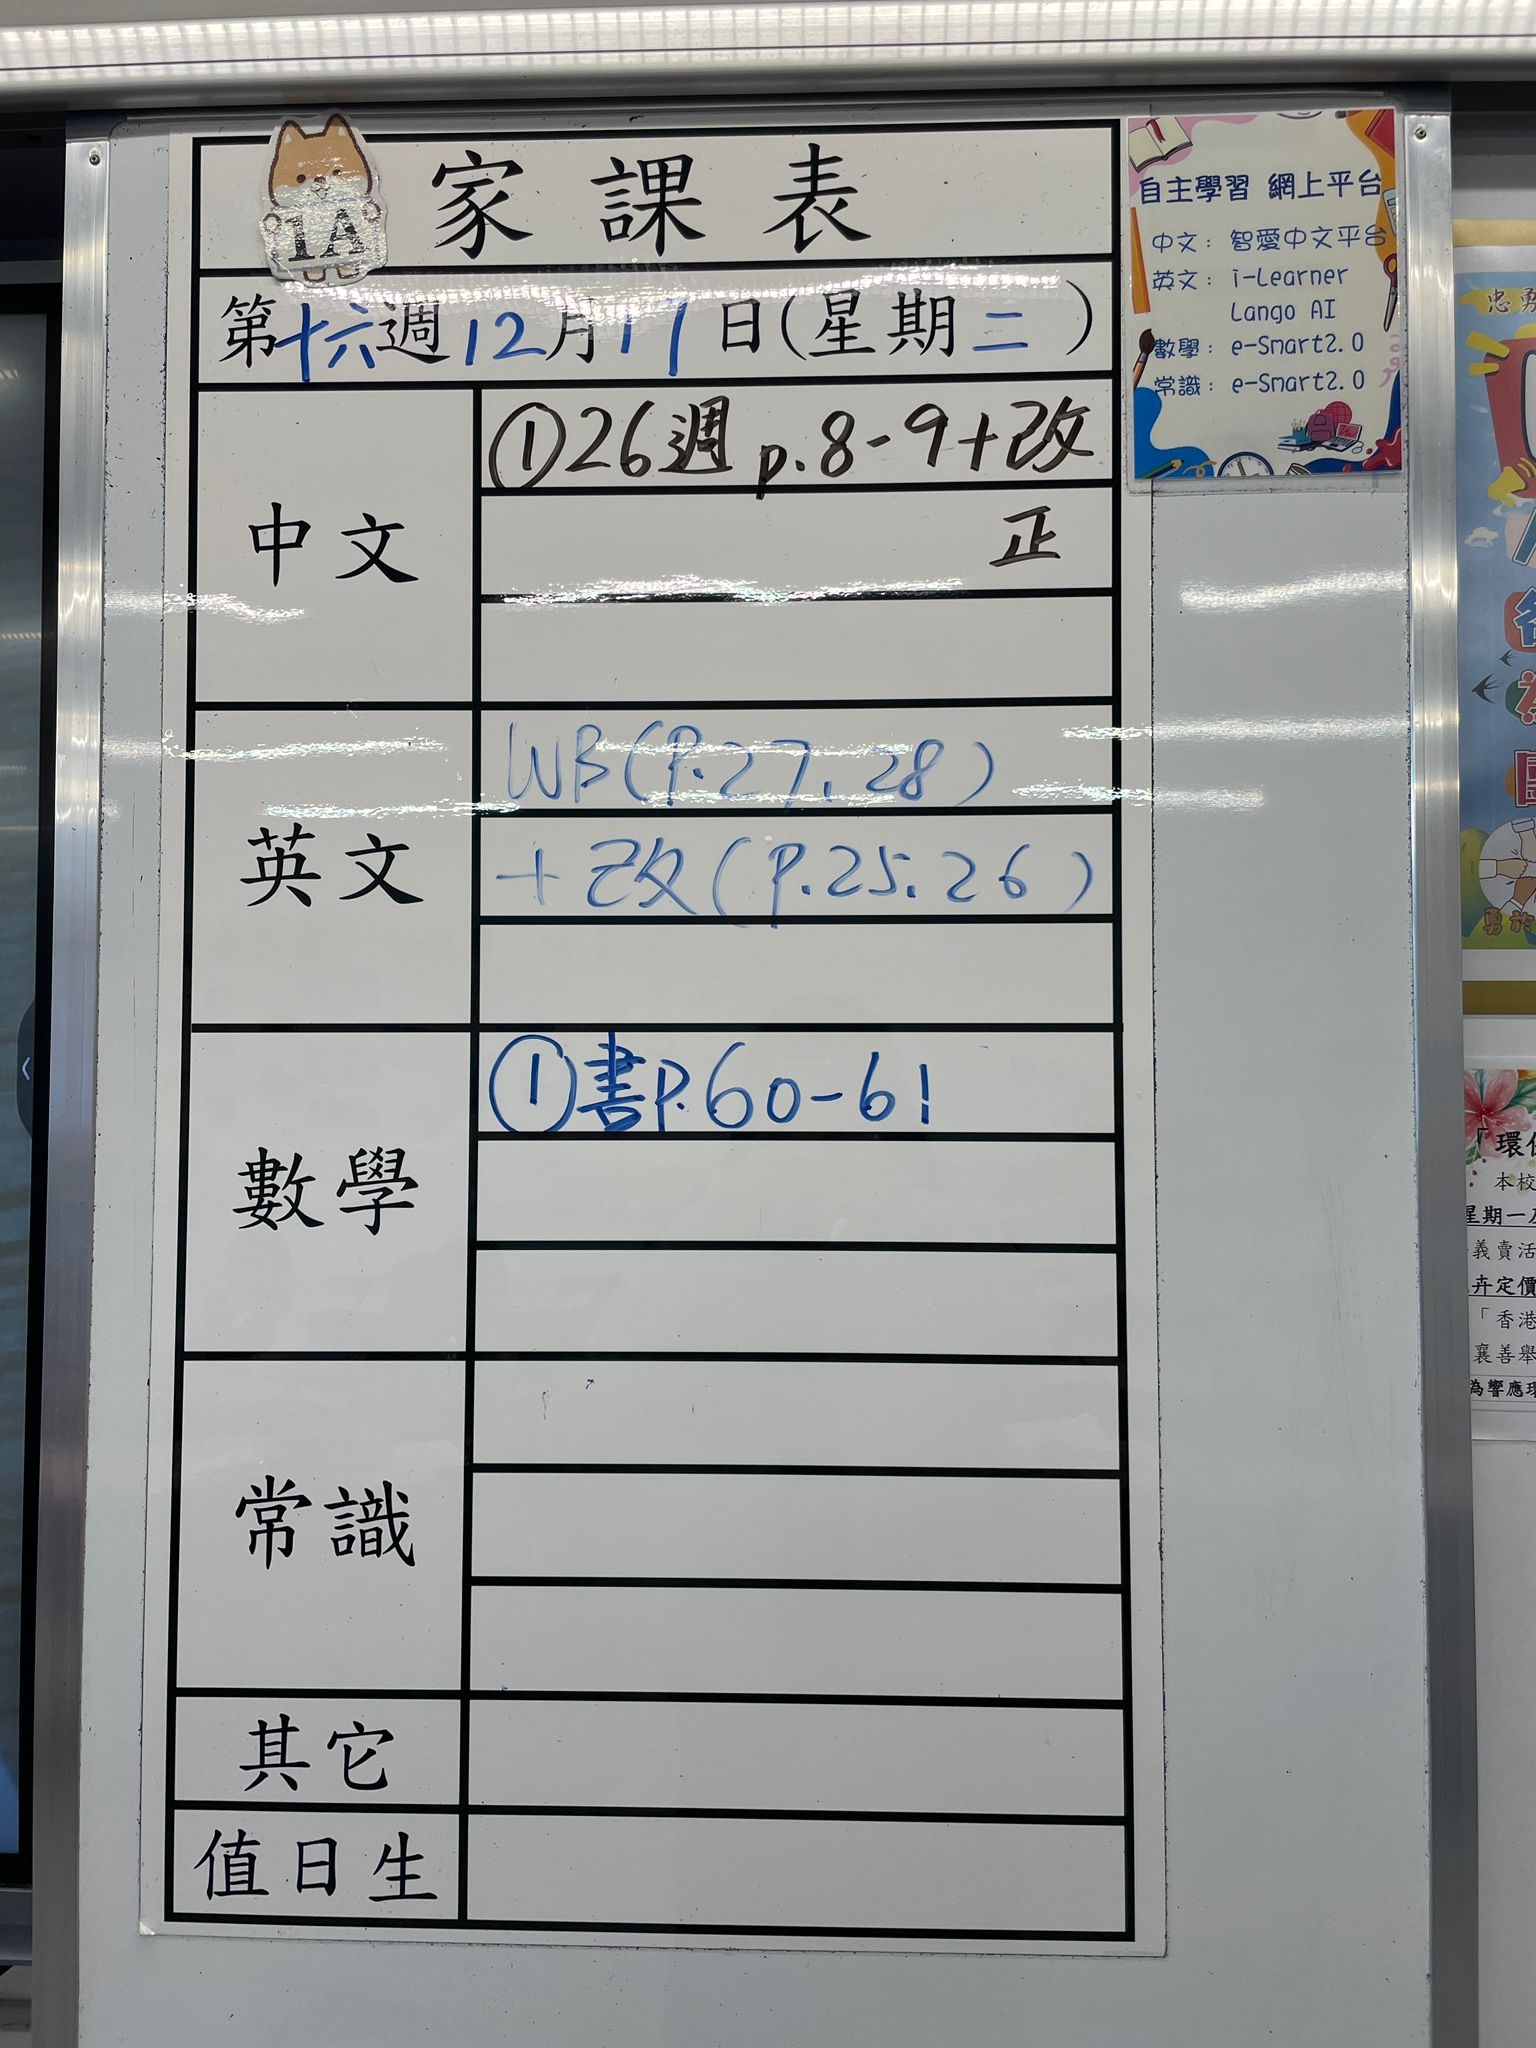 1A
家課表
第十六週12月17日(星期二)
中文
①26週 p.8-9+改
正
英文
WB(P.27,28)
+改(P.25.26)
數學
①書P.60-61
常識
其它
值日生
自主學習 網上平台
中文： 智愛中文平台
英文： i-Learner
Lango AI
數學： e-Smart2.0
常識： e-Smart2.0
忠勇
勇於
「環
本校
星期一
義賣活
卉定價
「香港
襄善舉
為響應環